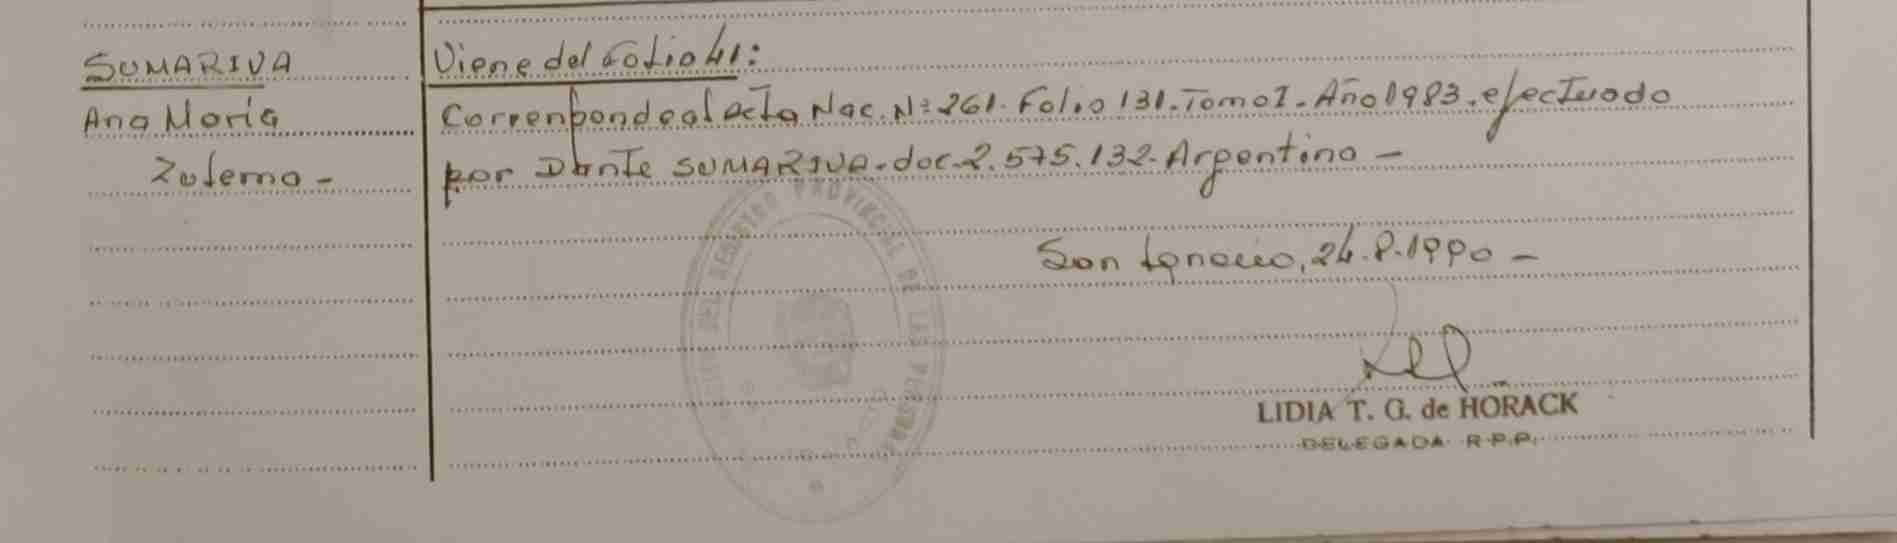 SUMARIVA
Ana María
Zulema -
Viene del Folio 41:
Corresponde al acta Nac. Nº 261. Folio 131. Tomo I. Año 1983. efectuado
por Dante SUMARIVA. doc. 2.575.132. Argentino -
San Ignacio, 24.8.1990 -
DEL REGISTRO PROVINCIAL DE LAS PERSONAS
LIDIA T. G. de HORACK
DELEGADA R.P.P.